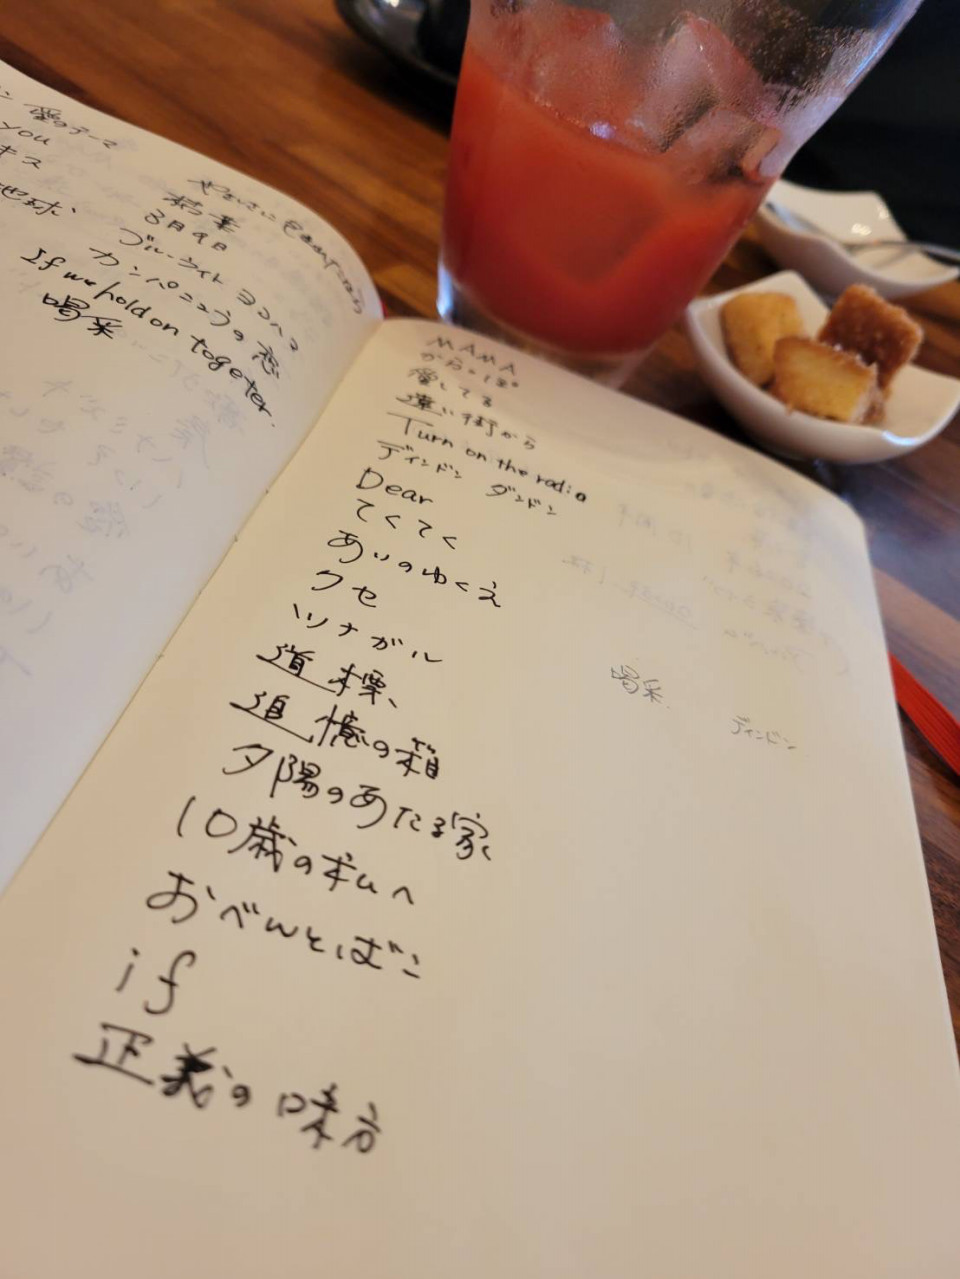 愛のテーマ
you
キス
地球
やさしさに包まれたなら
結葉
3月9日
ブルーライトヨコハマ
カンパニュラの恋
If we hold on together
喝采
MAMA
からっぽ
愛してる
遠い街から
Turn on the radio
ディンドン ダンドン
Dear
てくてく
あいのゆくえ
クセ
ツナガル
道標、
追憶の箱
夕陽のあたる家
10歳の私へ
おべんとばこ
if
正義の味方
喝采 ディンドン